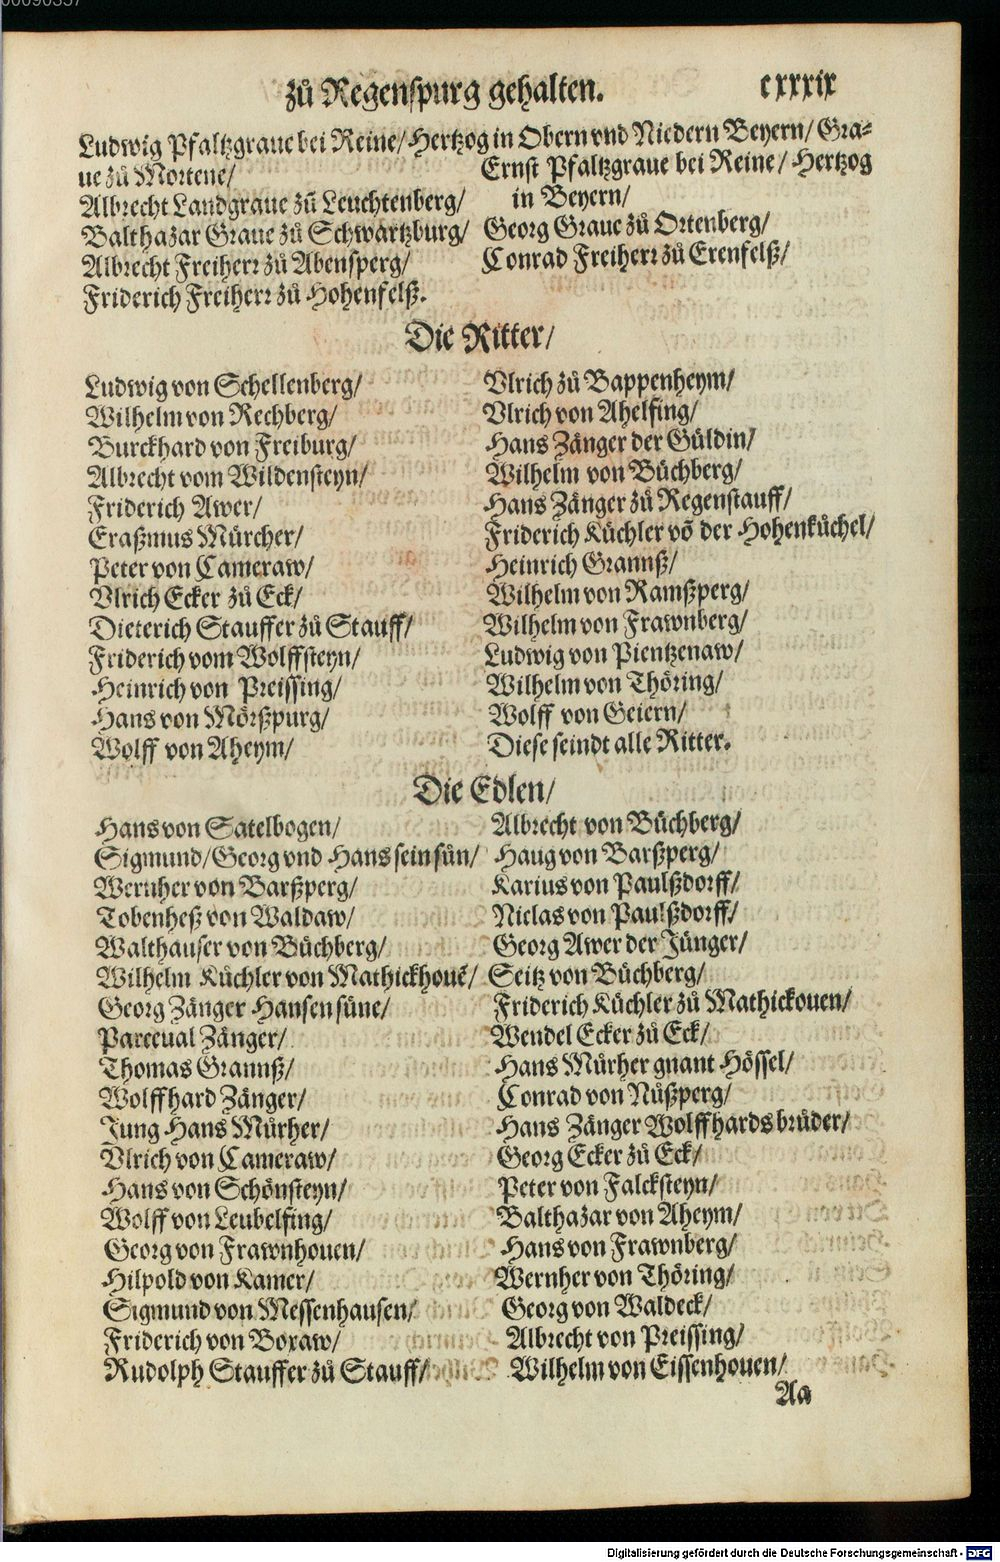 zů Regenspurg gehalten. cxxxix
Ludwig Pfaltzgraue bei Reine/ Hertzog in Obern vnd Nidern Beyern/ Gra-
ue zů Mortene/
Albrecht Landgraue zů Leuchtenberg/
Balthazar Graue zů Schwártzburg/
Albrecht Freiherr zů Abensperg/
Friderich Freiherr zů Hohenfelß.
Ernst Pfaltzgraue bei Reine/ Hertzog
in Beyern/
Georg Graue zů Ortenberg/
Conrad Freiherr zů Erenfelß/
Die Ritter/
Ludwig von Schellenberg/
Wilhelm von Rechberg/
Burckhard von Freiburg/
Albrecht vom Wildensteyn/
Friderich Awer/
Eraßmus Můrcher/
Peter von Cameraw/
Vlrich Ecker zů Eck/
Dieterich Stauffer zů Stauff/
Friderich vom Wolffsteyn/
Heinrich von Preissing/
Hans von Mörßpurg/
Wolff von Aheym/
Vlrich zů Bappenheym/
Vlrich von Ahelfing/
Hans Zånger der Gůldin/
Wilhelm von Bůchberg/
Hans Zånger zů Regenstauff/
Friderich Küchler võ der Hohenküchel/
Heinrich Grannß/
Wilhelm von Ramßperg/
Wilhelm von Frawnberg/
Ludwig von Pientzenaw/
Wilhelm von Thöring/
Wolff von Geiern/
Diese seindt alle Ritter.
Die Edlen/
Hans von Satelbogen/
Sigmund/ Georg vnd Hans sein sün/
Wernher von Barßperg/
Tobenheß von Waldaw/
Walthauser von Bůchberg/
Wilhelm Küchler von Mathickhouẽ/
Georg Zånger Hansen süne/
Parceual Zånger/
Thomas Grannß/
Wolffhard Zånger/
Jung Hans Můrher/
Vlrich von Cameraw/
Hans von Schönsteyn/
Wolff von Leubelfing/
Georg von Frawnhouen/
Hilpold von Kamer/
Sigmund von Messenhausen/
Friderich von Boxaw/
Rudolph Stauffer zů Stauff/
Albrecht von Bůchberg/
Haug von Barßperg/
Karius von Paulßdorff/
Niclas von Paulßdorff/
Georg Awer der Jünger/
Seitz von Bůchberg/
Friderich Küchler zů Mathickouen/
Wendel Ecker zů Eck/
Hans Můrher gnant Hössel/
Conrad von Nůßperg/
Hans Zånger Wolffhards brůder/
Georg Ecker zů Eck/
Peter von Falcksteyn/
Balthazar von Aheym/
Hans von Frawnberg/
Wernher von Thöring/
Georg von Waldeck/
Albrecht von Preissing/
Wilhelm von Eissenhouen/
Aa
Digitalisierung gefördert durch die Deutsche Forschungsgemeinschaft - DFG